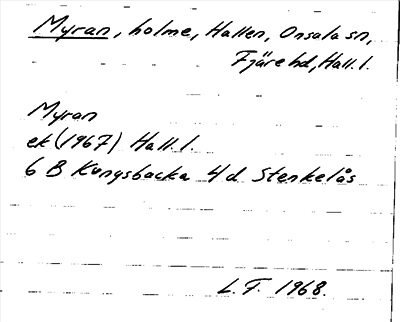 Myran, holme, Hallen, Onsala sn,
Fjäre hd, Hall. l.
Myran
ek (1967) Hall. l.
6 B Kungsbacka 4 d Stenkelås
L. F. 1968.